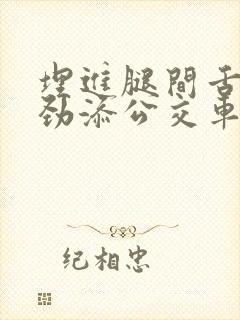 埋進腿間舌
劲添公交車
纪相忠